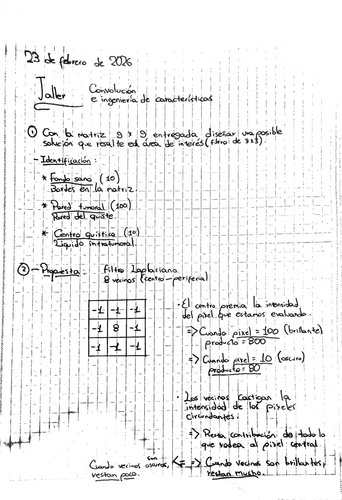 23 de febrero de 2026
Taller
Convolución
e ingeniería de características
① Con la matriz 9 x 9 entregada diseñar una posible
solución que resalte el área de interés (filtro de 3x3).
- Identificación:
* Fondo sano (10)
Bordes en la matriz.
* Pared tumoral (100)
Pared del quiste.
* Centro quístico (10)
Líquido intratumoral.
② - Propuesta: Filtro Laplaciano
8 vecinos (centro - periferia)
-1 -1 -1
-1 8 -1
-1 -1 -1
· El centro premia la intensidad
del pixel que estamos evaluando.
=> Cuando pixel = 100 (brillante)
producto = 800
=> Cuando pixel = 10 (oscuro)
producto = 80
· Los vecinos castigan la
intensidad de los pixeles
circundantes.
=> Resta contribución de todo lo
que rodea al pixel central.
=> Cuando vecinos son brillantes,
restan mucho.
Cuando vecinos son oscuros,
restan poco.